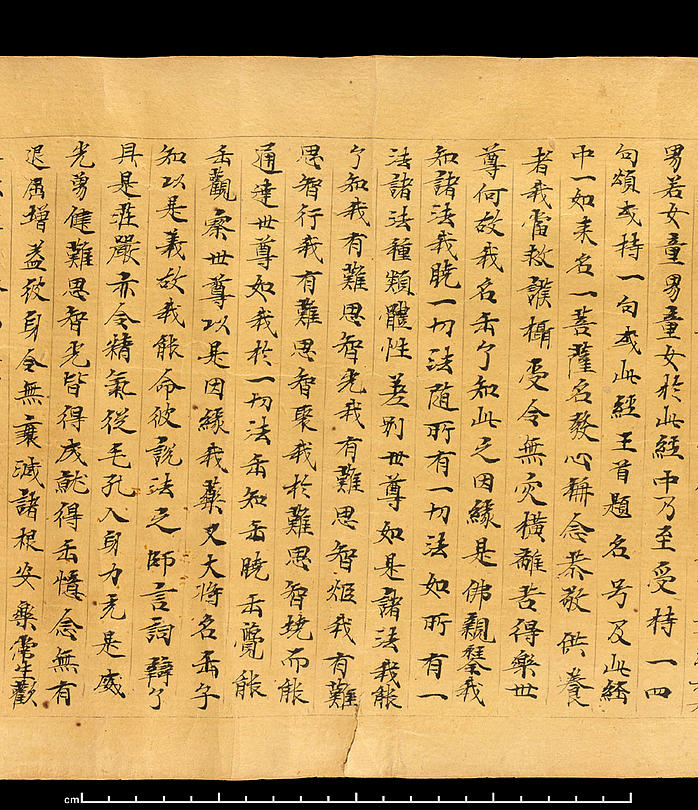 男若女童男童女於此經中乃至受持一四
句頌或持一句或此經王首題名号及此經
中一如来名一菩薩名發心稱念恭敬供養
者我當救護攝受令無灾橫離苦得樂世
尊何故我名正了知此之因緣是佛親證我
知諸法我曉一切法随所有一切法如所有一
法諸法種類體性差別世尊如是諸法我能
了知我有難思智光我有難思智炬我有難
思智行我有難思智聚我於難思智境而能
通達世尊如我於一切法正知正曉正覺能
正觀察世尊以是因緣我藥叉大将名正了
知以是義故我能令彼說法之師言詞辯了
具足莊嚴亦令精氣從毛孔入身力充足威
光勇健難思智光皆得成就得正憶念無有
退屈增益彼身令無衰減諸根安樂常生歡
cm